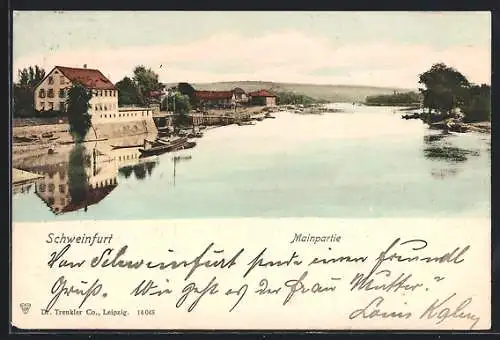 Schweinfurt
Mainpartie
Von Schweinfurt sende einen freundl
Gruß. Wie geht es der Frau Mutter?
Louis
Dr. Trenkler Co., Leipzig. 14045